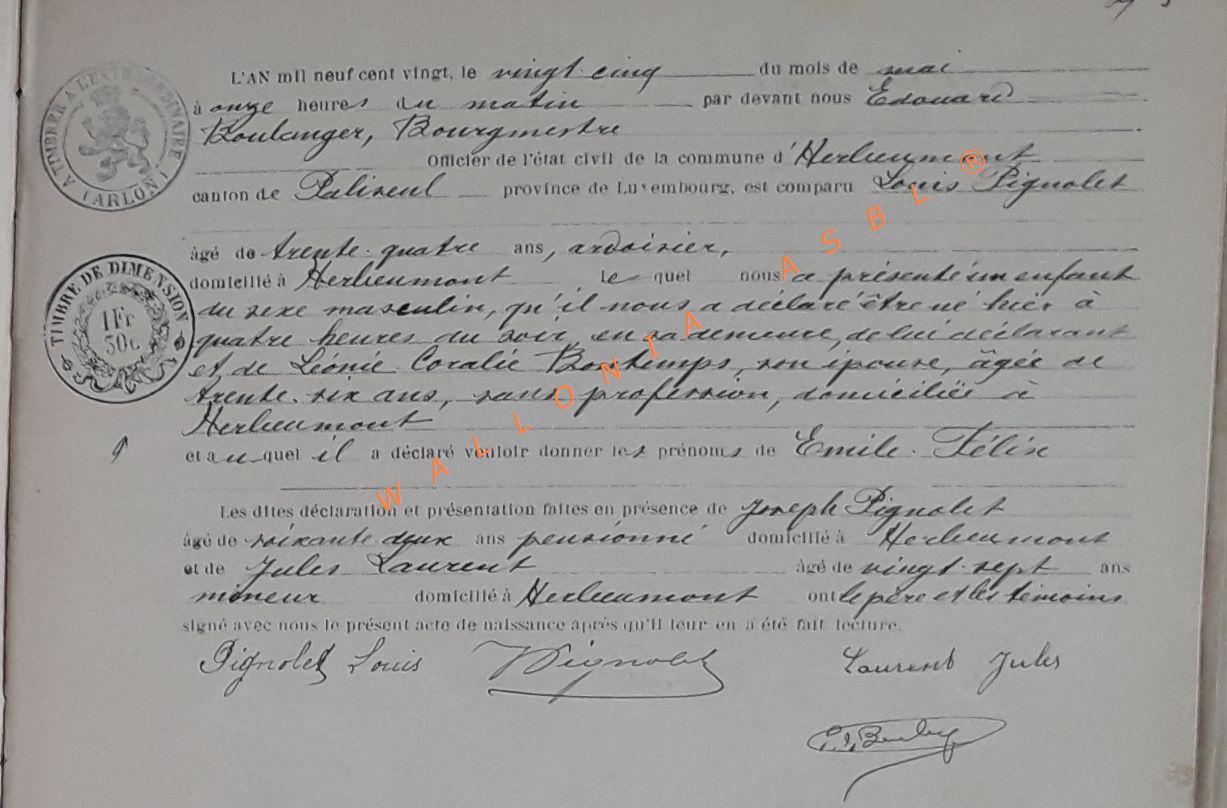 L'AN mil neuf cent vingt, le vingt-cinq du mois de mai
à onze heures du matin par devant nous Edouard
Boulanger, Bourgmestre
Officier de l'état civil de la commune d'Herbeumont
canton de Paliseul province de Luxembourg, est comparu Louis Pignolet
âgé de trente-quatre ans, ardoisier,
domicilié à Herbeumont lequel nous a présenté un enfant
du sexe masculin, qu'il nous a déclaré être né hier à
quatre heures du soir, en sa demeure, de lui déclarant
et de Léonie Coralie Bontemps, son épouse, âgée de
trente-six ans, sans profession, domiciliée à
Herbeumont
et auquel il a déclaré vouloir donner les prénoms de Emile-Félix
Les dites déclaration et présentation faites en présence de Joseph Pignolet
âgé de soixante deux ans pensionné domicilié à Herbeumont
et de Jules Laurent âgé de vingt-sept ans
mineur domicilié à Herbeumont ont le père et les témoins
signé avec nous le présent acte de naissance après qu'il leur en a été fait lecture.
Pignolet Louis J Pignolet Laurent Jules
TIMBRER A L'EXTRAORDINAIRE
(ARLON)
TIMBRE DE DIMENSION
1Fr
50c
WALLONIA ASBL ®